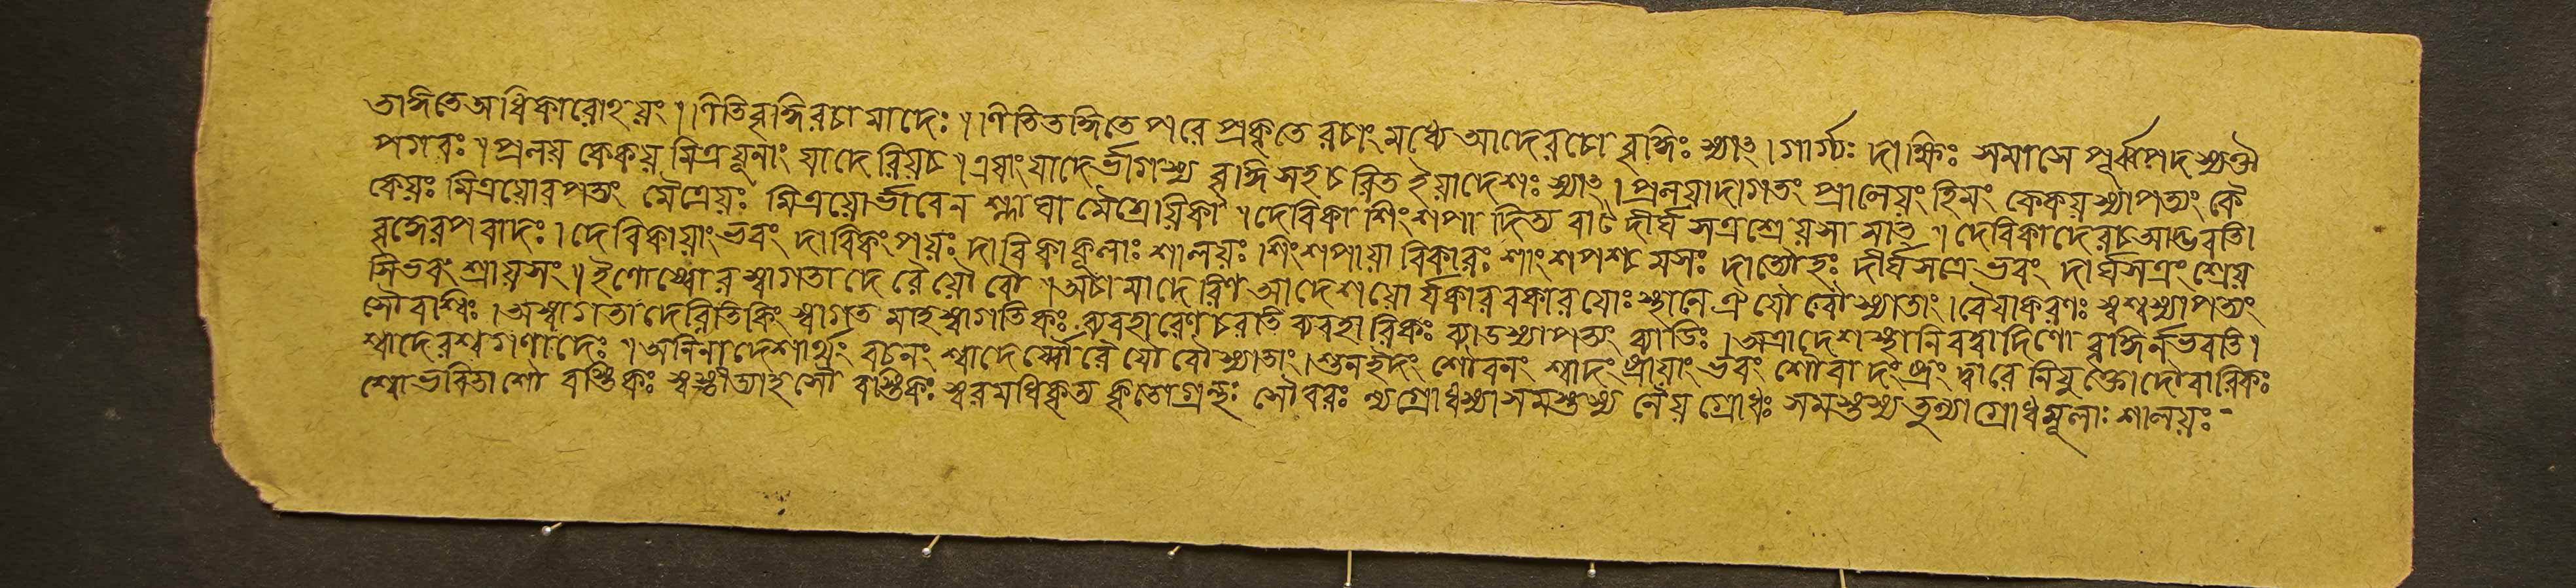 তদ্ধিতে অধিকারোঽয়ং । ণিতি বৃদ্ধিরচামাদেঃ । ণিতি তদ্ধিতে পরে প্রকৃতে রচাং মধ্যে আদেরচো বৃদ্ধিঃ স্যাৎ । গার্গ্যঃ দাক্ষিঃ সমাসে পূর্ব্বপদস্য ঔ
পগবঃ । প্রলয় কেকয় মিত্রয়ূনাং যাদেরিয়চ । এষাং যাদের্ভাগস্য বৃদ্ধি সহচরিত ইয়াদেশঃ স্যাৎ । প্রলয়াদাগতং প্রালেয়ং হিমং কেকয়স্যাপত্যং কৈ
কেয়ঃ মিত্রয়োরপত্যং মৈত্রেয়ঃ মিত্রয়োর্ভাবেন শ্লাঘা মৈত্রেয়িকা । দেবিকা শিংশপা দিত্যবাট দীর্ঘসত্র শ্রেয়সামাৎ । দেবিকাদেরাচ আদ্ভবতি ।
বৃদ্ধেরপবাদঃ । দেবিকায়াং ভবং দাবিকং পয়ঃ দাবিকাকূলাঃ শালয়ঃ । শিংশপায়া বিকারঃ শাংশপশ্চমসঃ দাত্যৌহঃ দীর্ঘসত্রে ভবং দার্ঘসত্রং শ্রেয়
সি ভবং শ্রায়সং । ইণোয্বোরস্বাগতাদেরৈয়ৌবৌ । অচামাদেরিণ আদেশয়োর্যকারবকারয়োঃ স্থানে ঐযৌবৌ স্যাতাং । বৈয়াকরণঃ স্বশ্বস্যাপত্যং
সৌবাশ্বিঃ । অস্বাগতাদেরিতিকিং স্বাগতমাহ স্বাগতিকঃ ব্যবহারেণ চরতি ব্যবহারিকঃ ব্যাডস্যাপত্যং ব্যাডিঃ । অত্রাদেশস্থানিবত্বাদিণো বৃদ্ধির্নভবতি ।
শ্বাদেরশ্বগণাদেঃ । অনিনাদেশার্থং বচনং শ্বাদের্য্বৌরৈযৌবৌ স্যাতাং । শুনইদং শৌবনং শ্বাদংষ্ট্রায়াং ভবং শৌবাদংষ্ট্রং দ্বারে নিযুক্তো দৌবারিকঃ
শ্বোভবিতা শৌবস্তিকঃ স্বস্তীত্যাহ সৌবস্তিকঃ স্বরমধিকৃত্য কৃতোগ্রন্থঃ সৌবরঃ ন্যগ্রোধস্যাসমস্তস্য নৈয়গ্রোধঃ সমস্তস্য তু ন্যাগ্রোধমূলাঃ শালয়ঃ